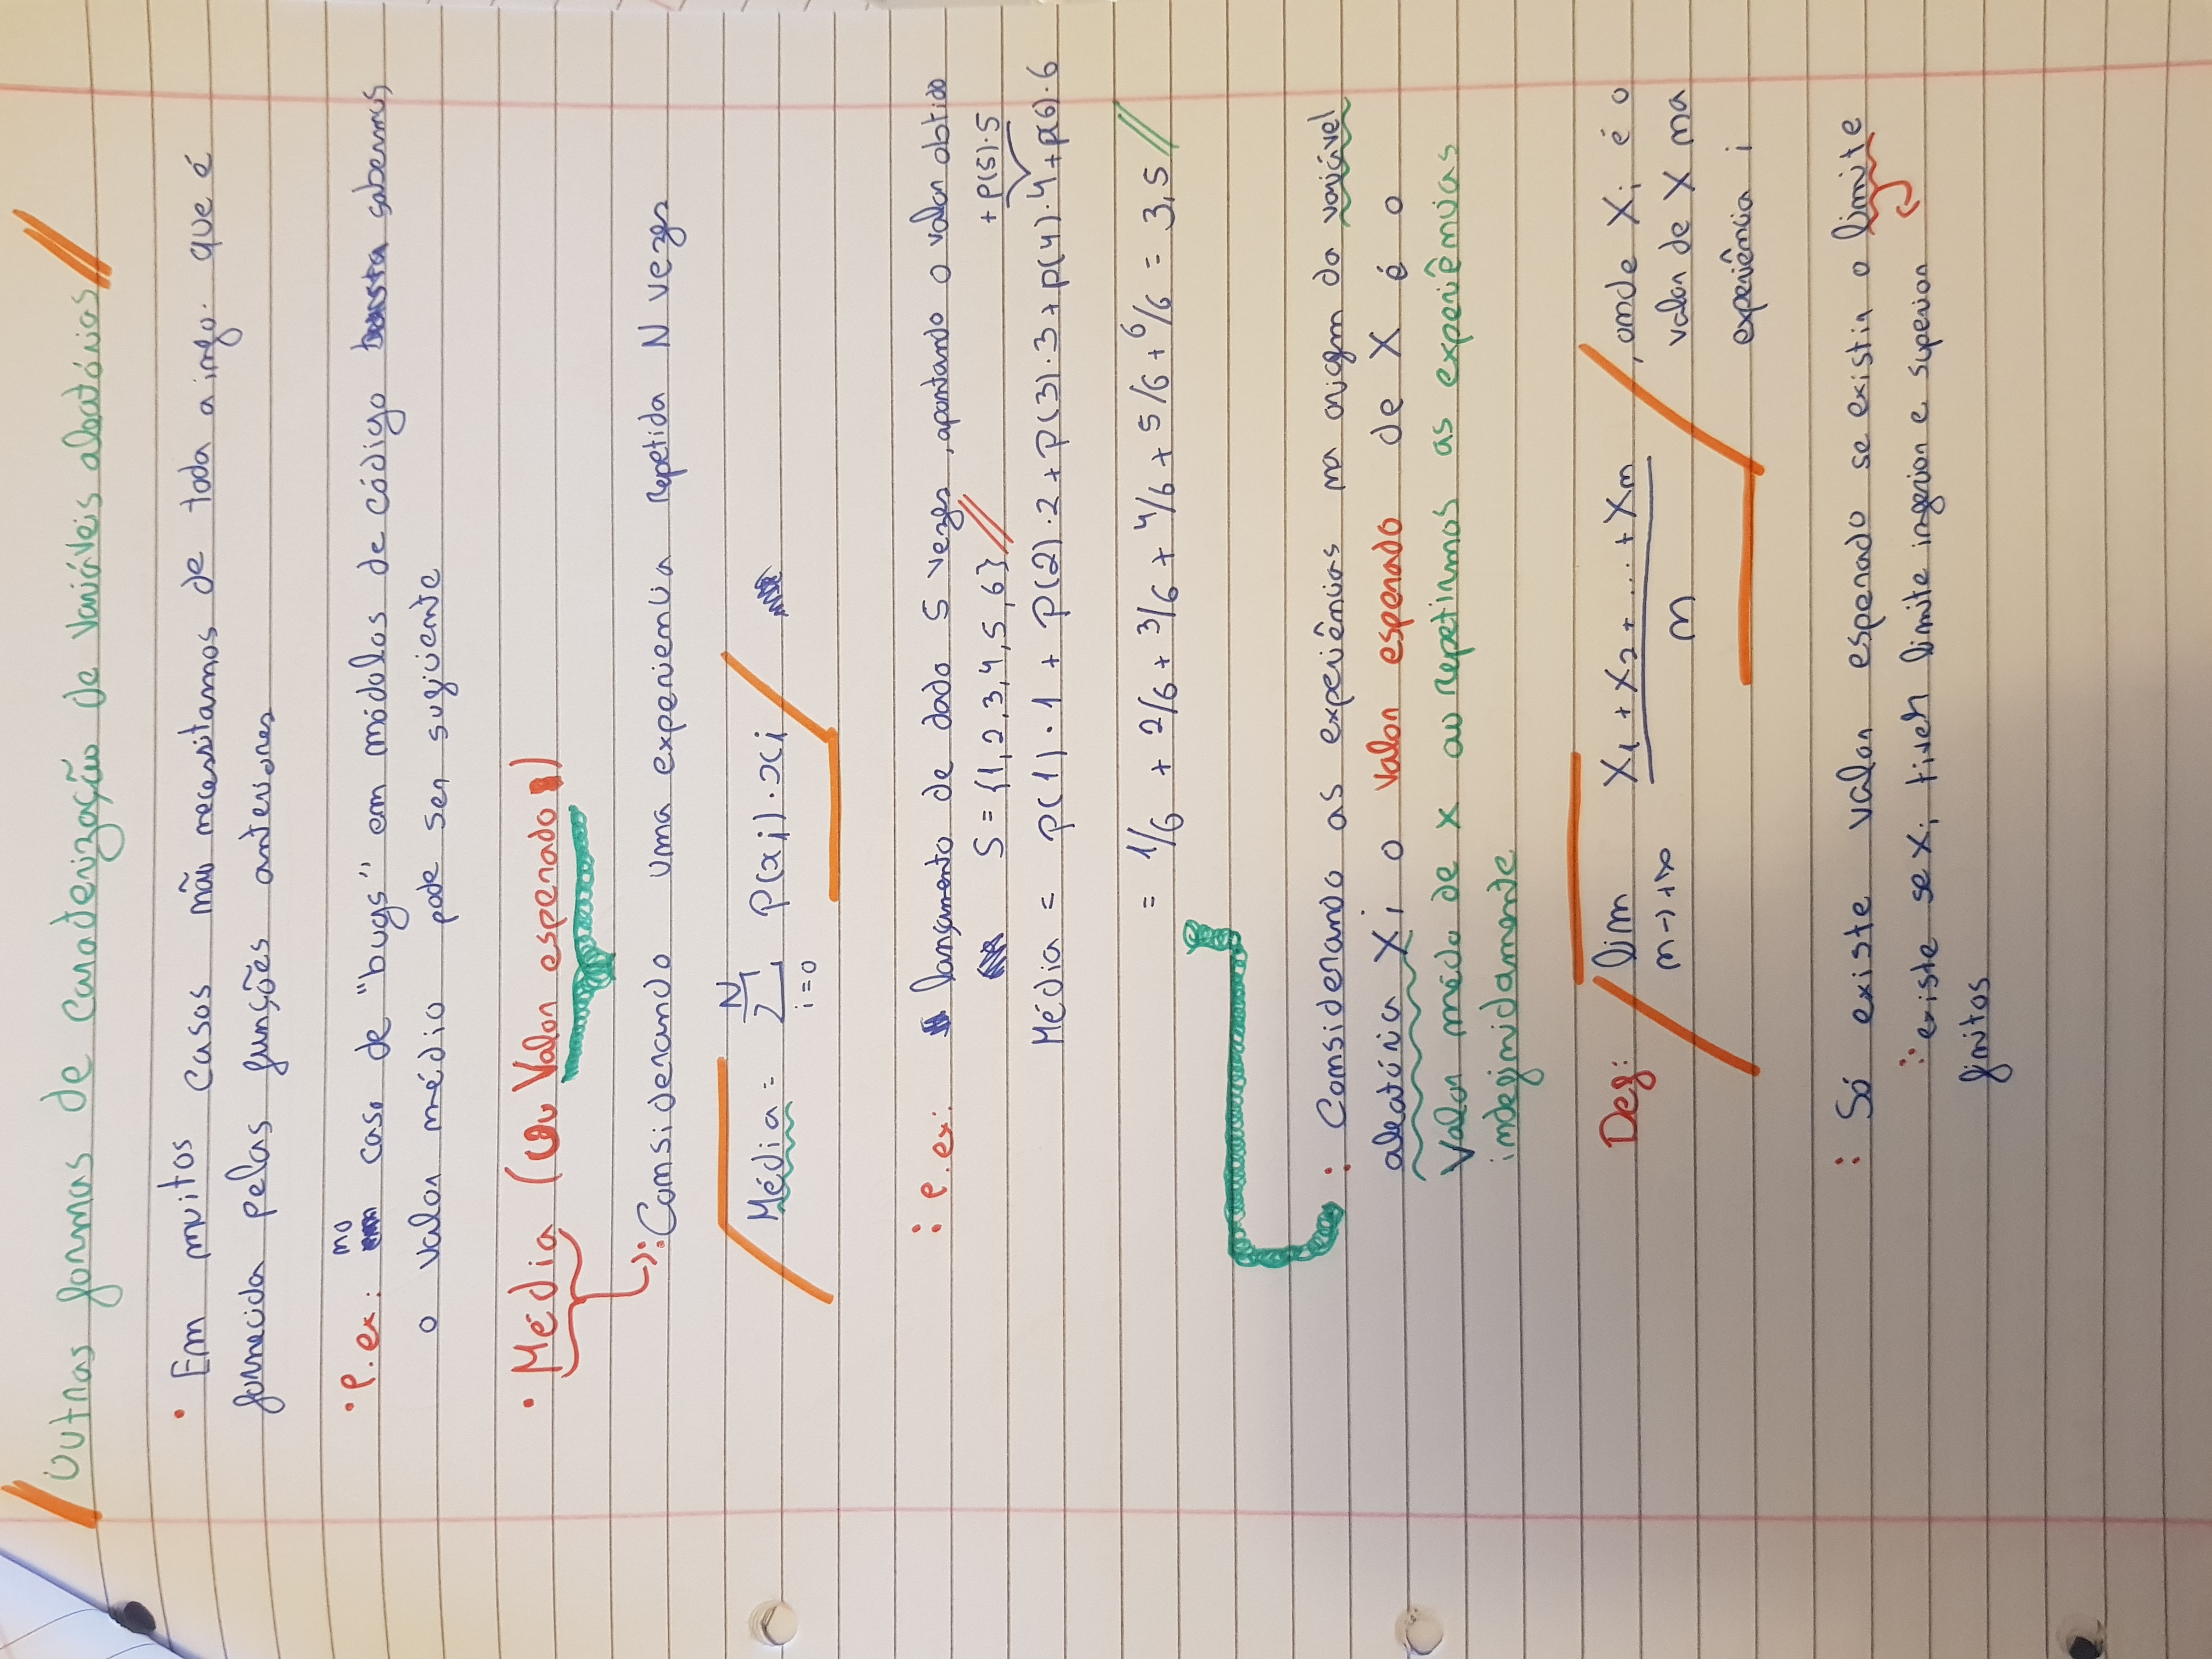 Outras formas de caraterização de variáveis aleatórias
• Em muitos casos não necessitamos de toda a info. que é
fornecida pelas funções anteriores
• P. ex: no caso de "bugs" em módulos de código sabermos
o valor médio pode ser suficiente
• Média (ou Valor esperado)
↳: Considerando uma experiencia repetida N vezes
Média = \sum_{i=0}^{N} P(xi) · xi
: P. ex: lançamento de dado 5 vezes, apontando o valor obtido
S = {1, 2, 3, 4, 5, 6} //
+ P(5)·5
Média = P(1) · 1 + P(2) · 2 + P(3) · 3 + P(4) · 4 + P(6) · 6
= 1/6 + 2/6 + 3/6 + 4/6 + 5/6 + 6/6 = 3,5 //
: Considerando as experiências na origem da variável
aleatória Xi o valor esperado de X é o
Valor médo de x ao repetirmos as experiências
indefinidamente
Def: lim n→+∞ (X1 + X2 + ... + Xn) / n , onde Xi é o
valor de X na
experiência i
: Só existe valor esperado se existir o limite
∵ existe se Xi tiver limite inferior e superior
finitos